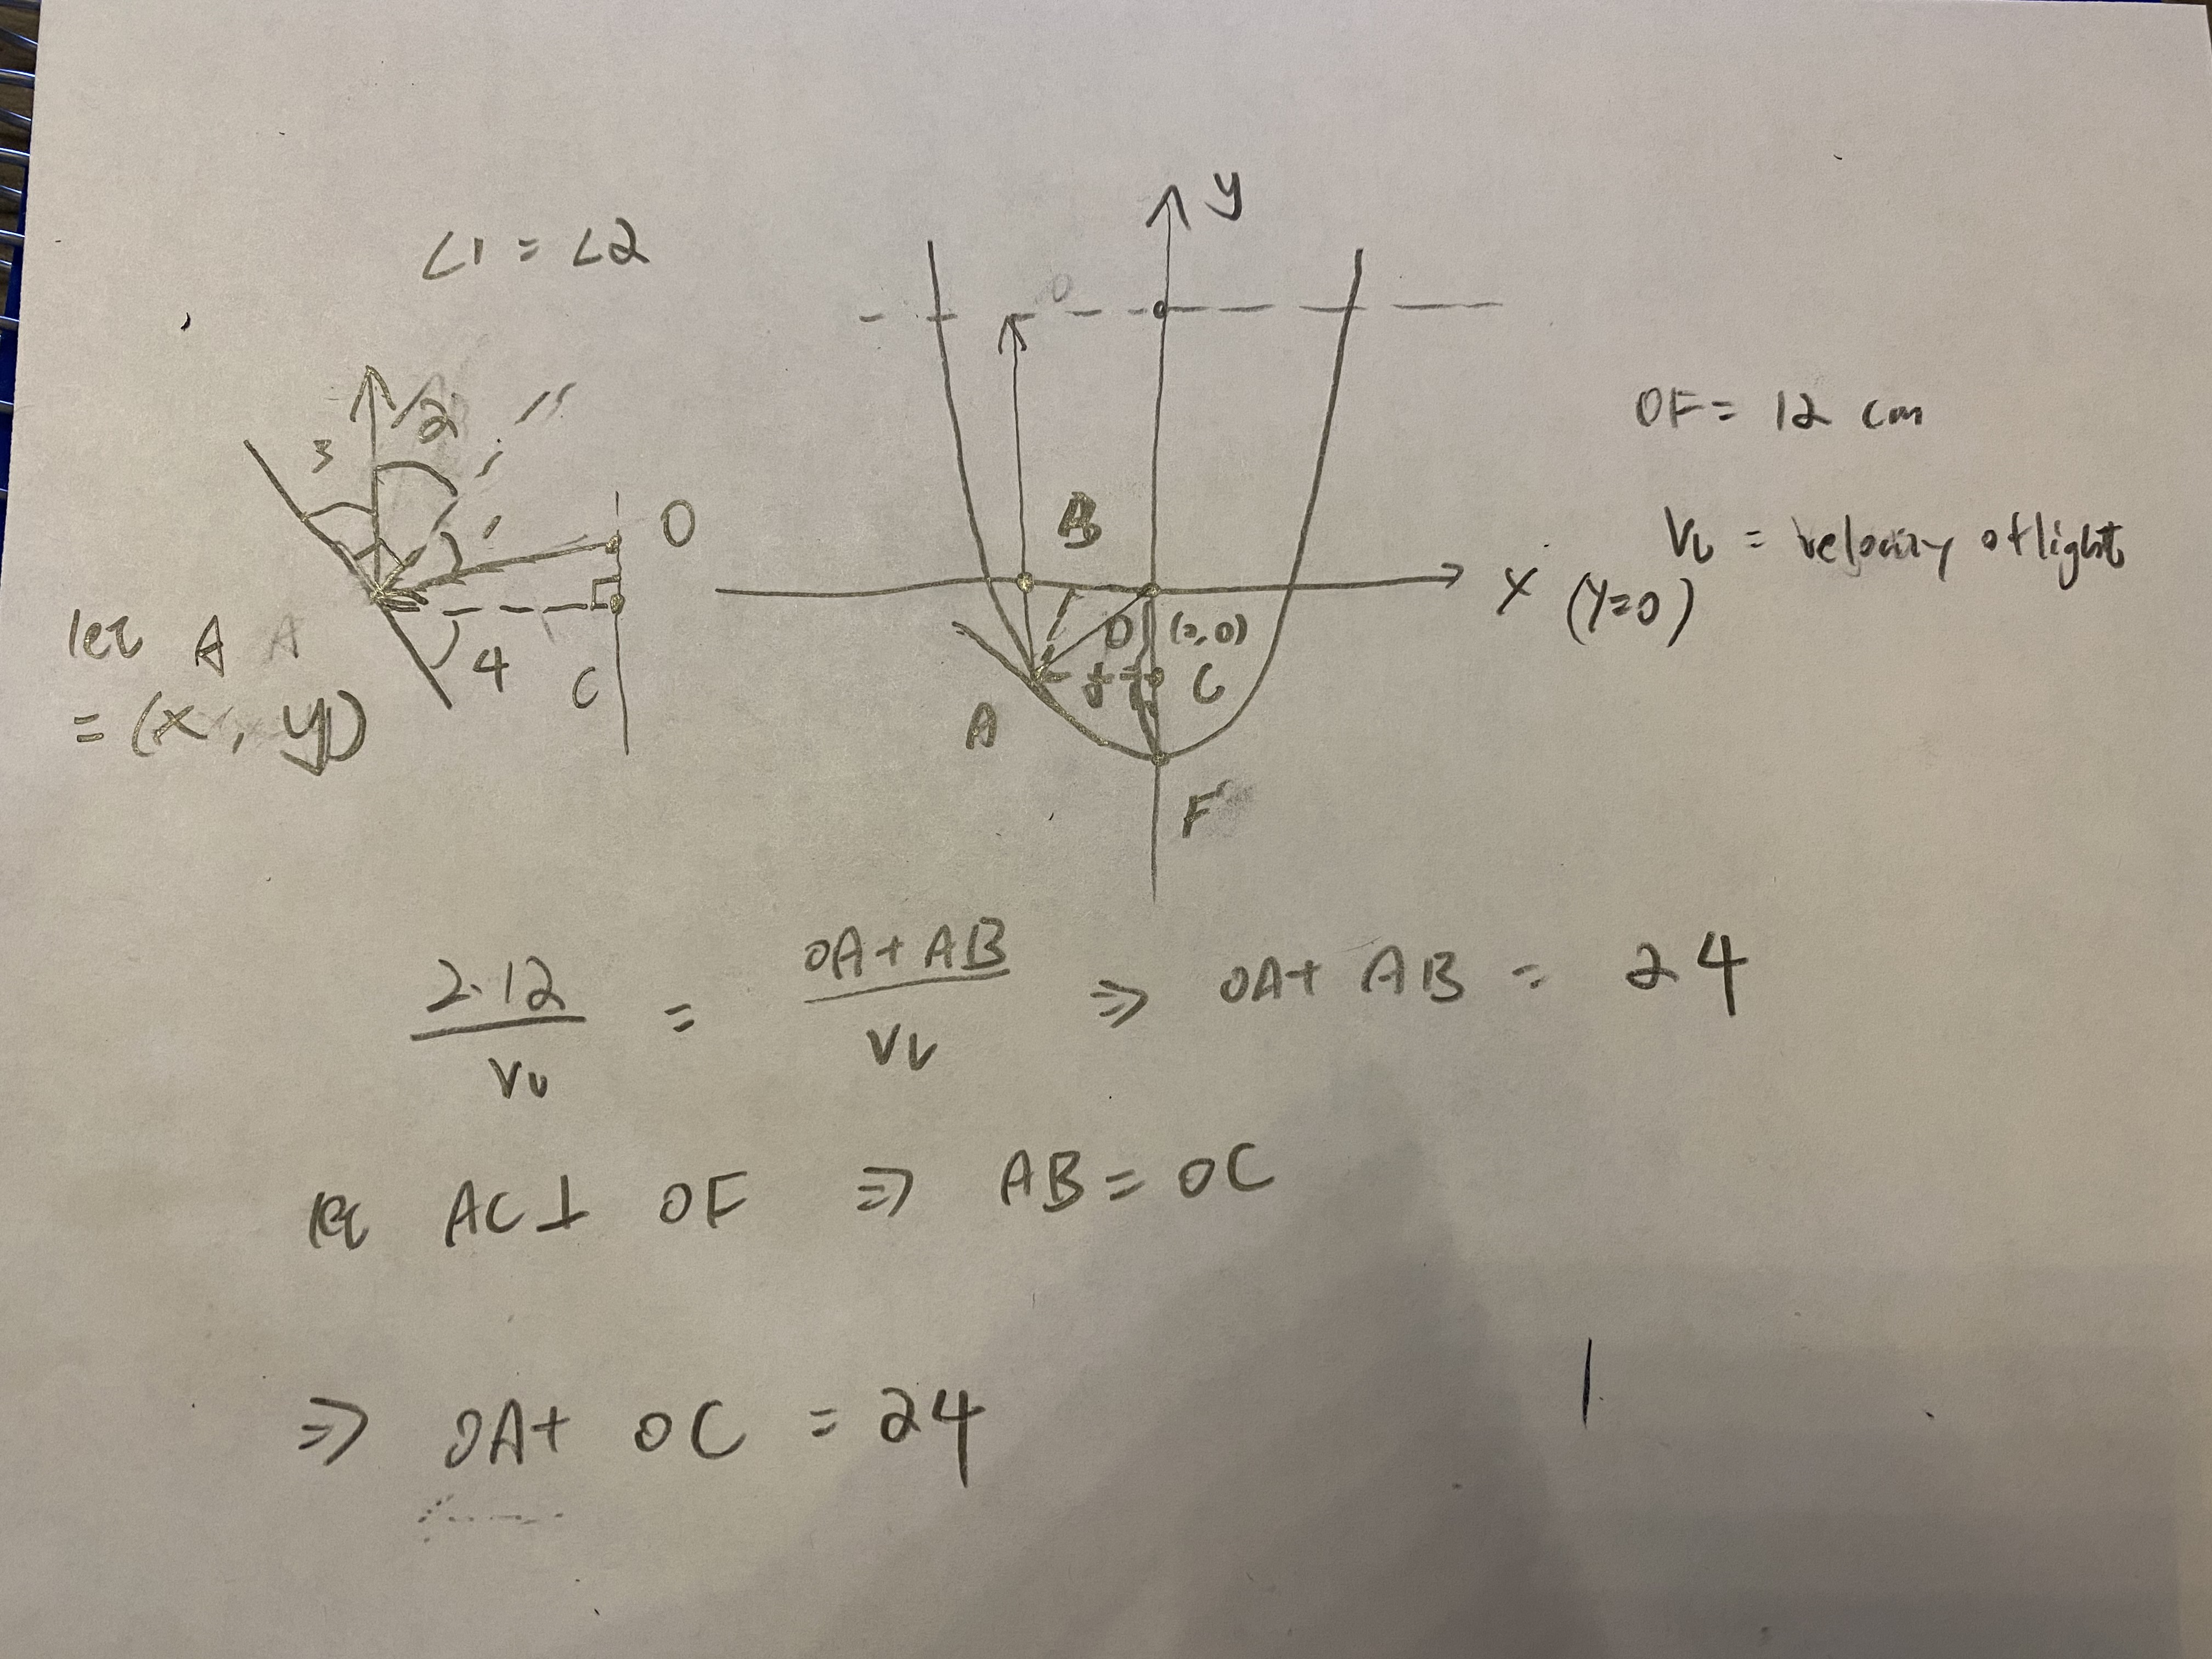 ∠1 = ∠2
y
3
2
O
C
4
let A
= (x, y)
B
x (y=0)
O
(0,0)
C
A
F
OF = 12 cm
VL = velocity of light
2·12/VL = OA+AB/VL ⇒ OA+ AB = 24
let AC⊥ OF ⇒ AB = OC
⇒ OA+ OC = 24